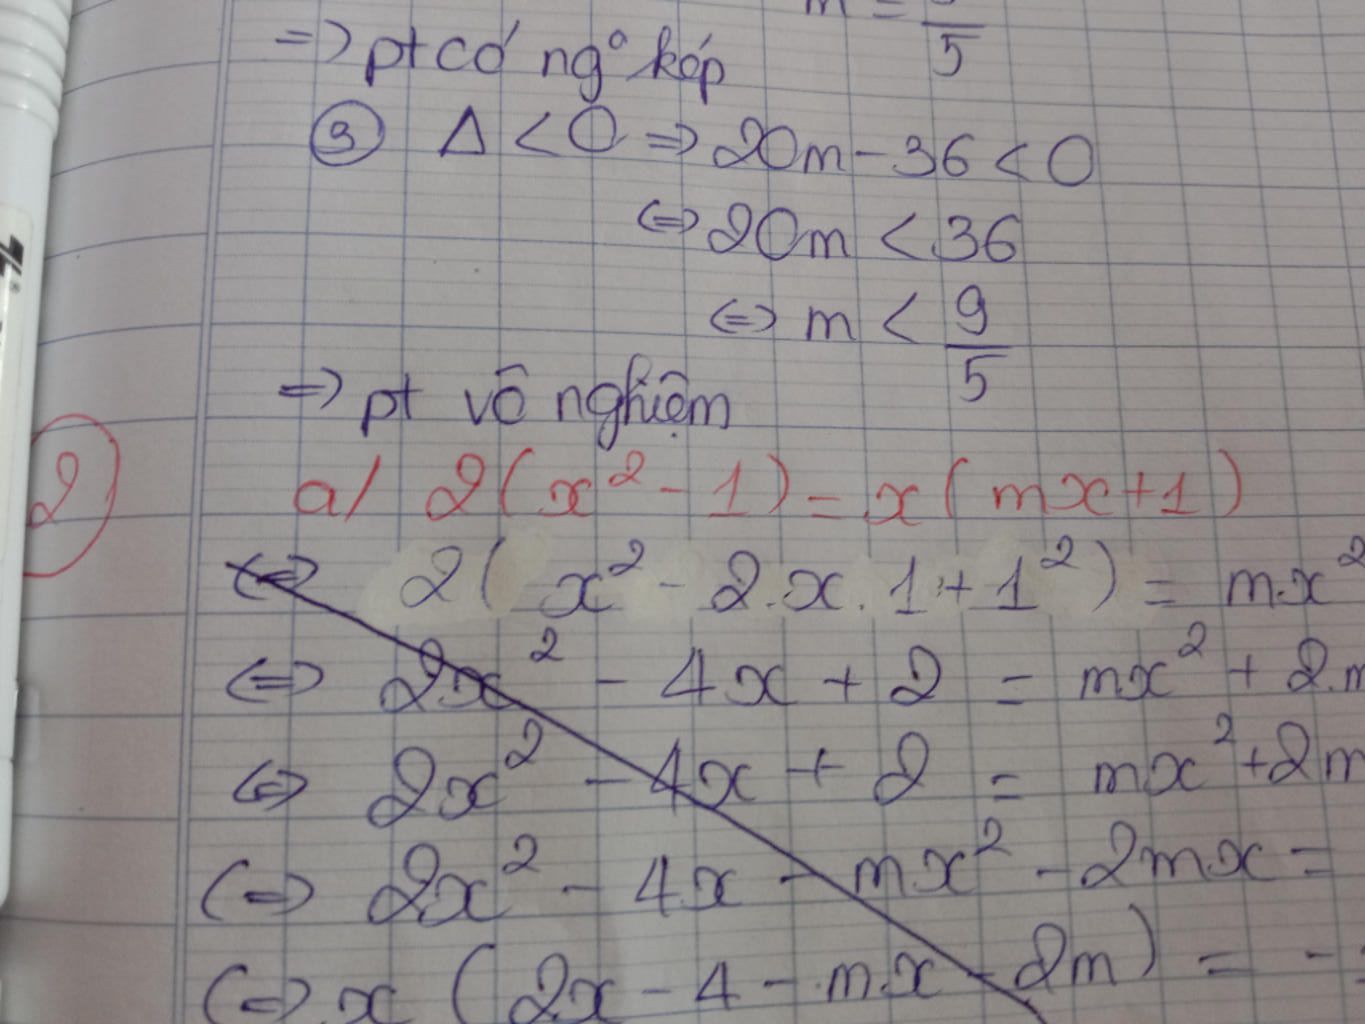 m = /5
=> pt có ngº kép
③ Δ < 0 => 20m - 36 < 0
<=> 20m < 36
<=> m < 9/5
=> pt vô nghiệm
2) a/ 2(x² - 1) = x(mx+1)
<=> 2(x² - 2.x.1 + 1²) = m.x²
<=> 2x² - 4x + 2 = mx² + 2.m
<=> 2x² - 4x + 2 = mx² + 2m
<=> 2x² - 4x - mx² - 2mx =
<=> x(2x - 4 - mx - 2m) = -